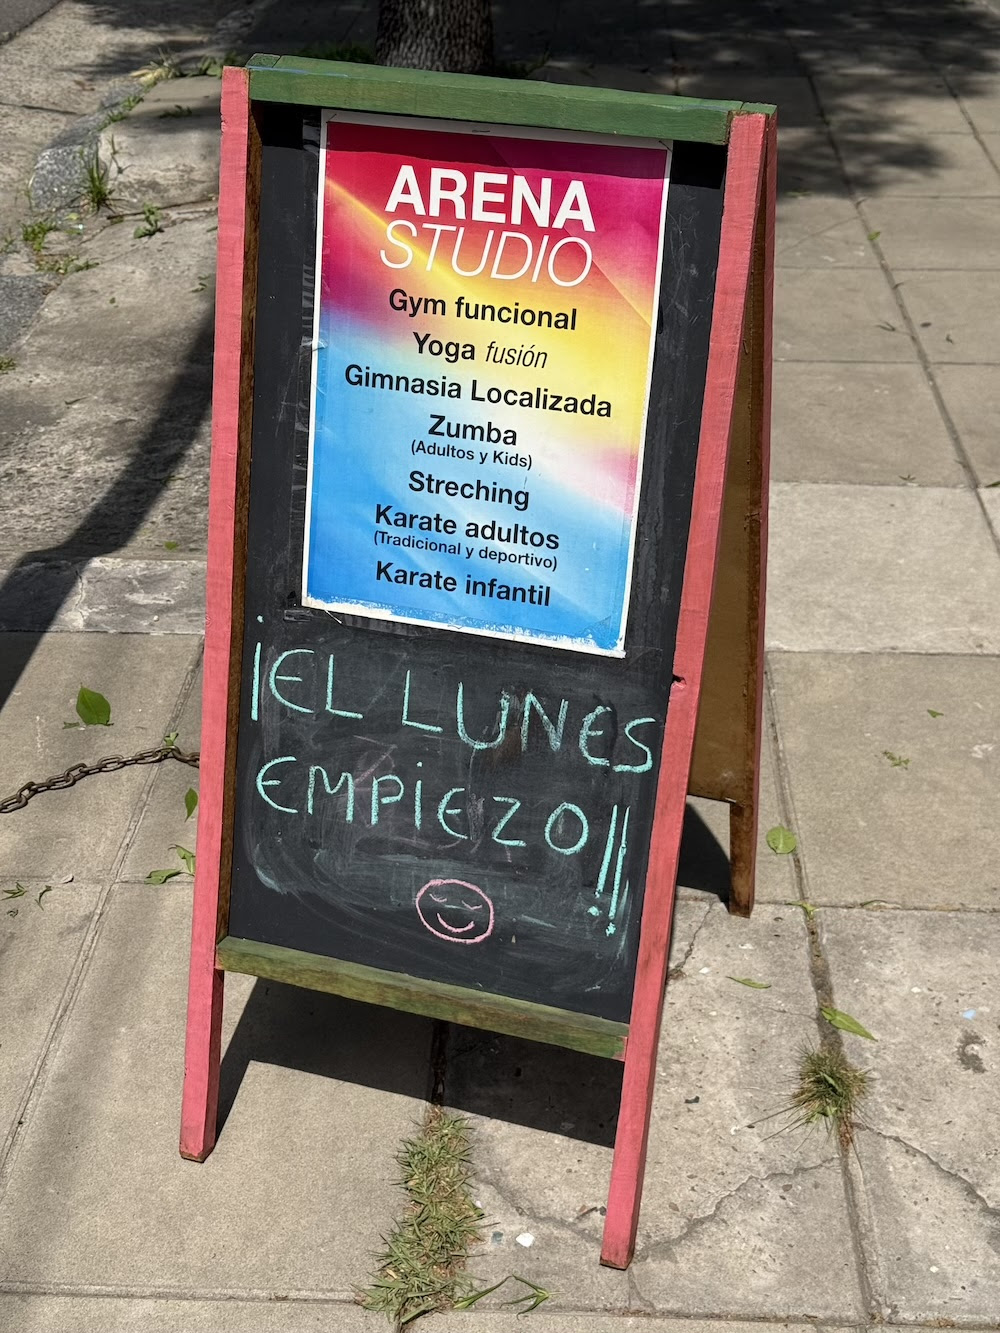 ARENA
STUDIO
Gym funcional
Yoga fusión
Gimnasia Localizada
Zumba
(Adultos y Kids)
Streching
Karate adultos
(Tradicional y deportivo)
Karate infantil
¡EL LUNES
EMPIEZO!!